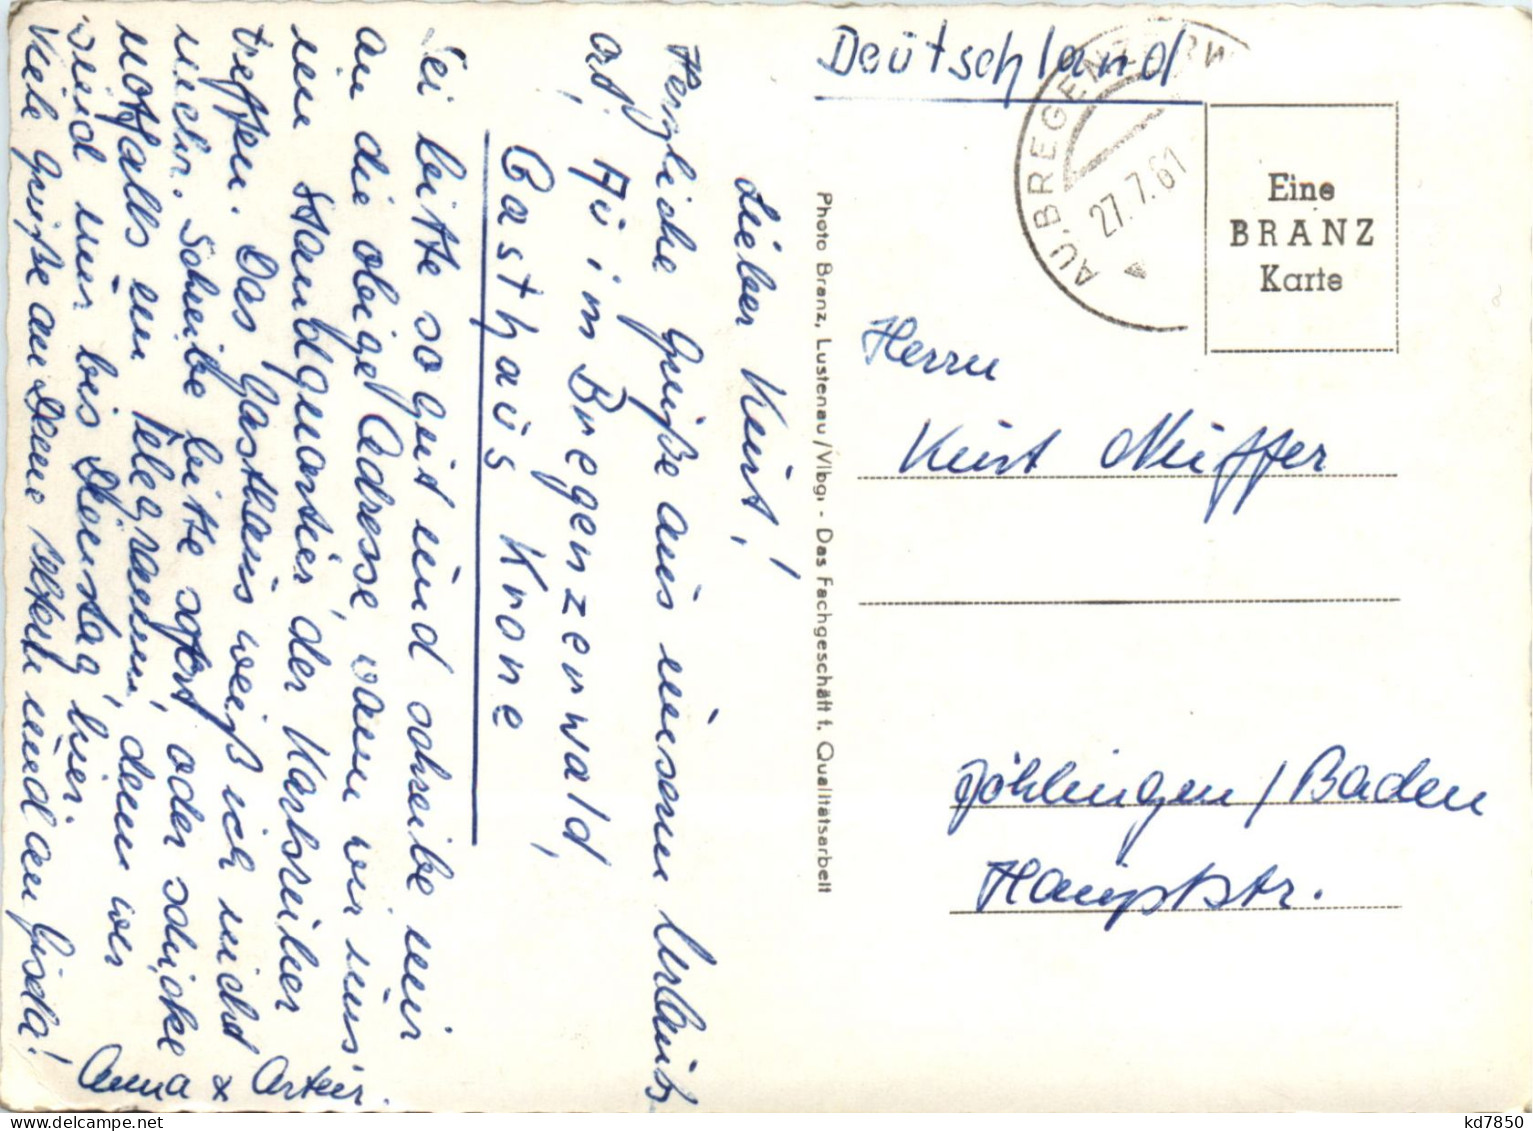 Lieber Kurt!
Herzliche Grüße aus unserm Urlaubs
ort, Au im Bregenzerwald,
Gasthaus Krone
Sei bitte so gut und schreibe mir
an die obige Adresse, wann wir uns
im Standquartier der Karlsruher
treffen. Das Gasthaus weiß ich nicht
mehr. Schreibe bitte sofort, oder schicke
notfalls ein Telegramm, denn wir
sind nur bis Dienstag hier.
Viele Grüße an Deine Eltern und an Gisela!
Anna + Artur.
Photo Branz, Lustenau/Vlbg. - Das Fachgeschäft f. Qualitätsarbeit
Deutschland
AU. BREGENZERW
27.7.61
Eine
BRANZ
Karte
Herrn
Kurt Müffer
Jöhlingen/Baden
Hauptstr.
delcampe.net
kd7850